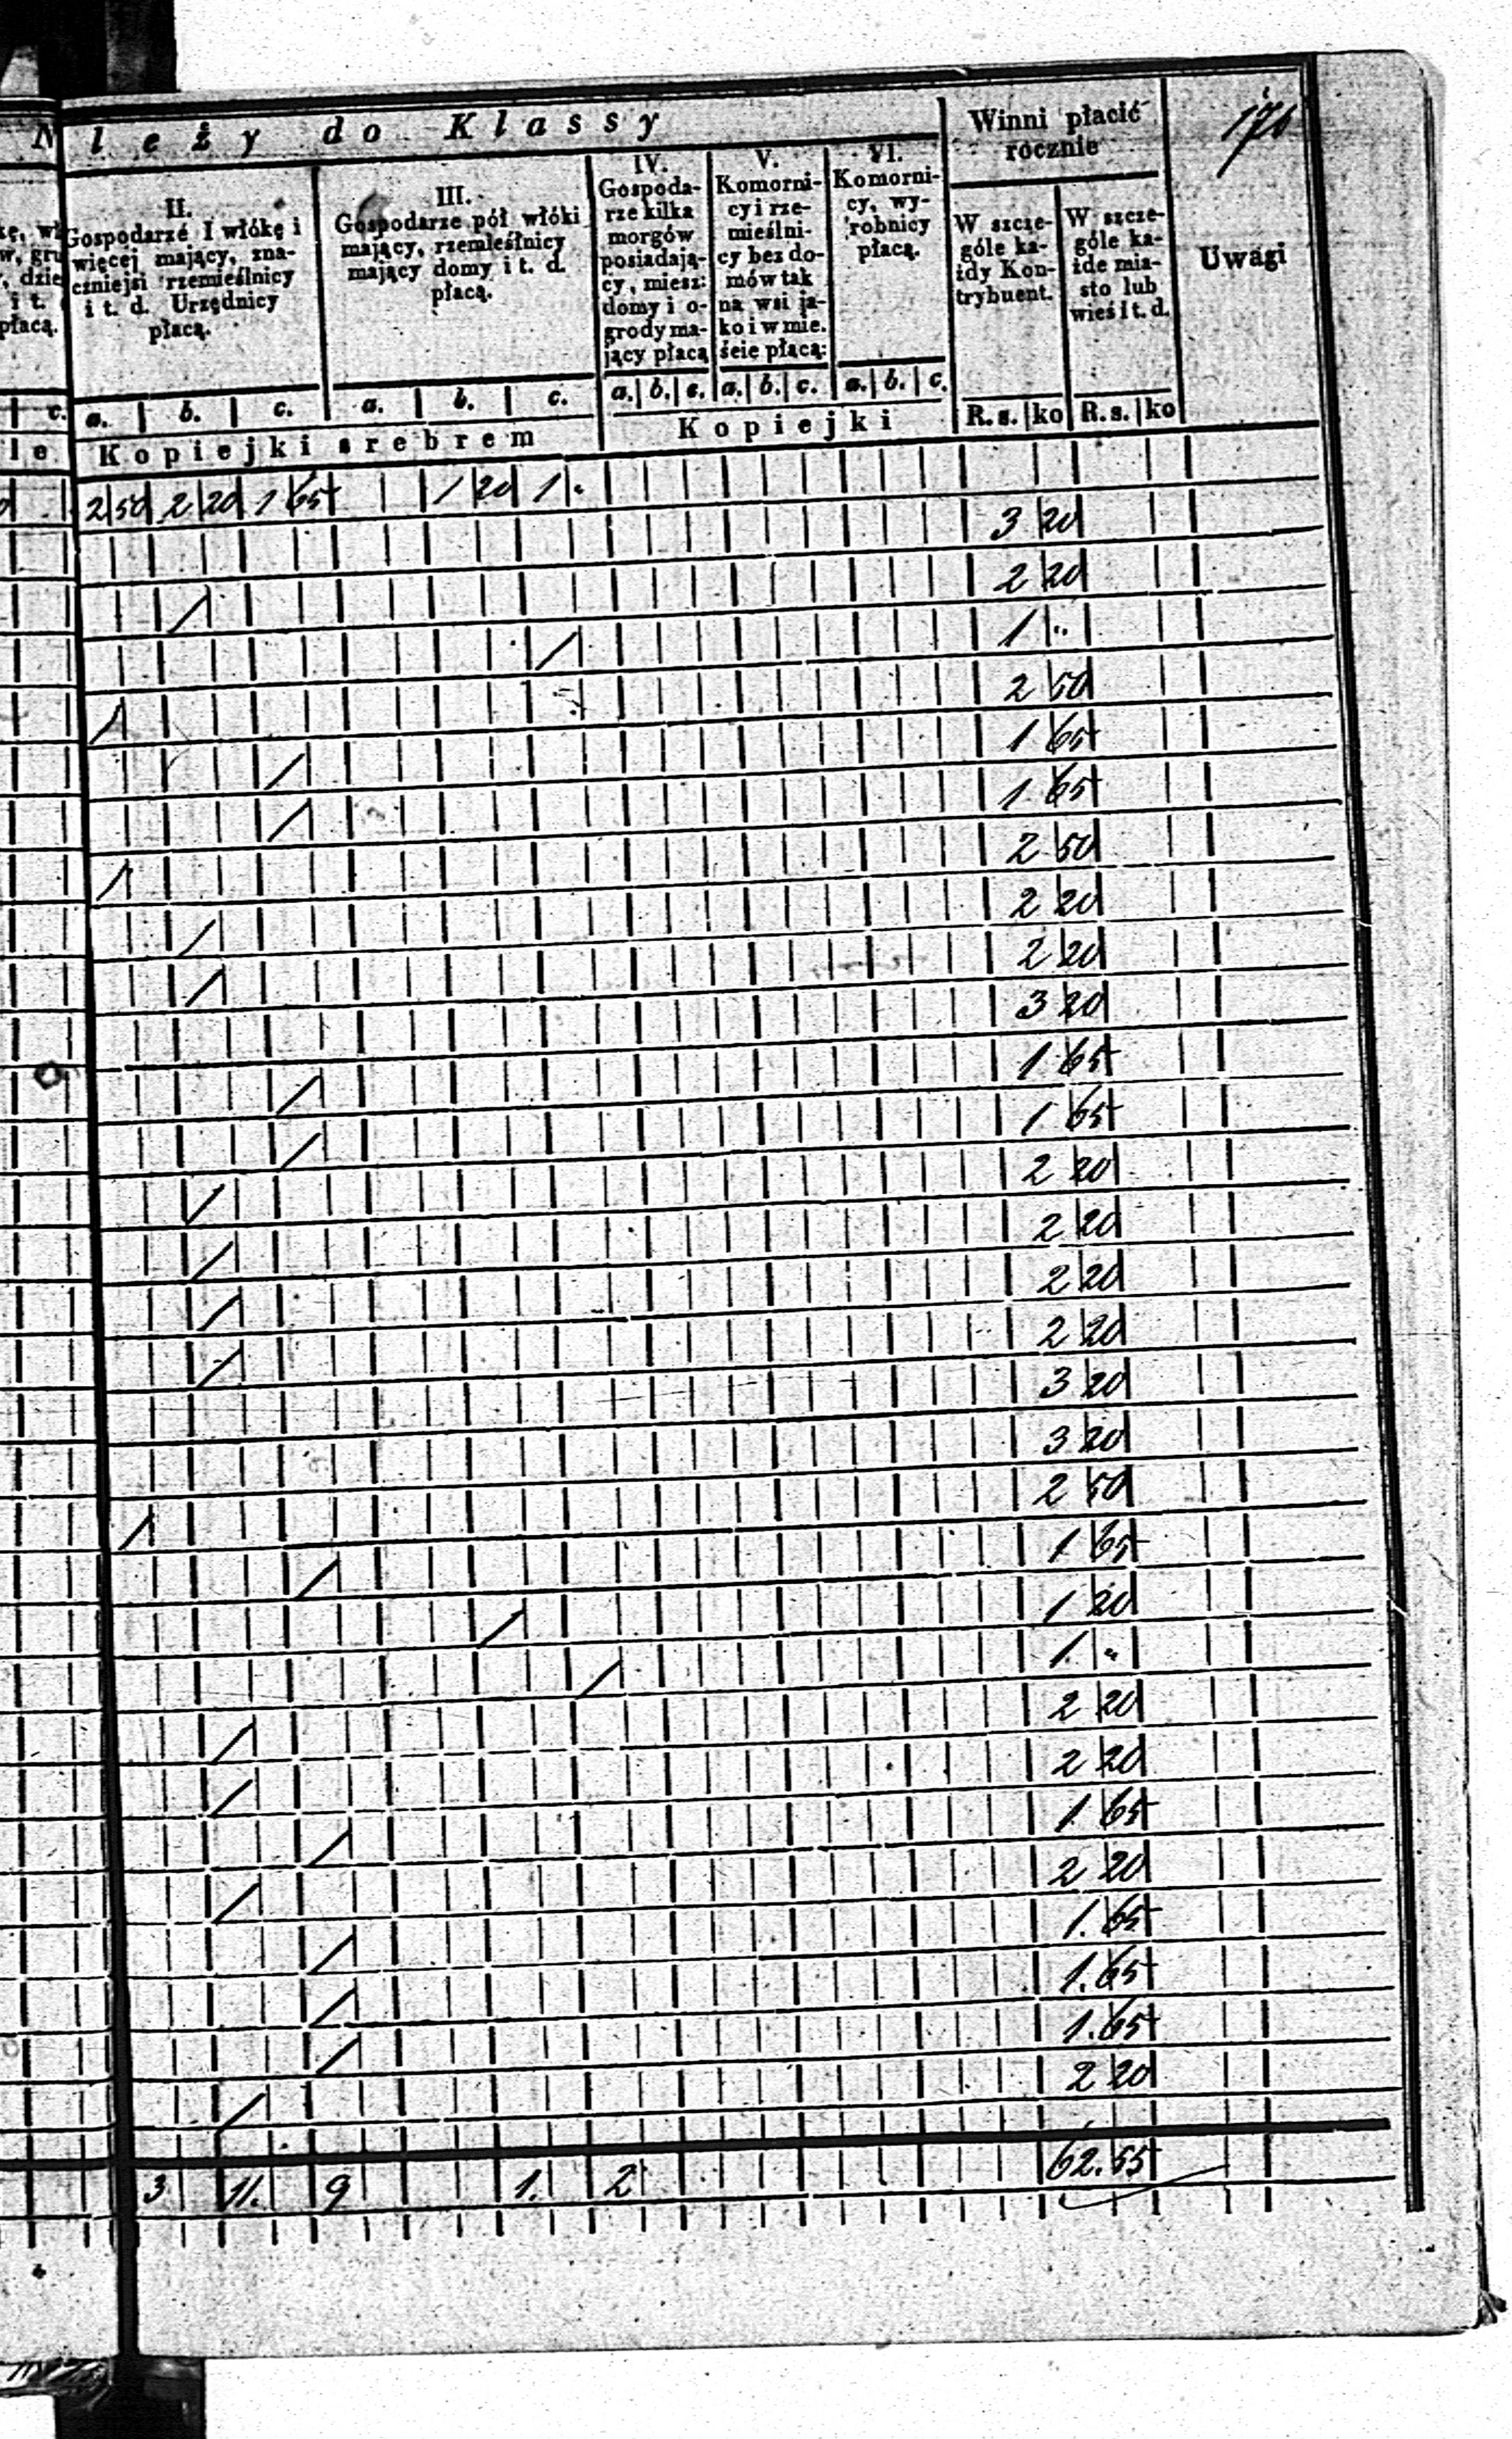 N l e ż y d o K l a s s y
Winni płacić rocznie
II.
Gospodarze I włókę i
więcej mający, zna-
czniejsi rzemieślnicy
i t. d. Urzędnicy
płacą.
III.
Gospodarze pół włóki
mający, rzemieślnicy
mający domy i t. d.
płacą.
IV.
Gospoda-
rze kilka
morgów
posiadają-
cy, miesz:
domy i o-
grody ma-
jący płacą
V.
Komorni-
cy i rze-
mieślni-
cy bez do-
mów tak
na wsi ja-
ko i w mie.
ście płacą:
VI.
Komorni-
cy, wy-
robnicy
płacą.
W szcze-
góle ka-
żdy Kon-
trybuent.
W szcze-
góle ka-
żde mia-
sto lub
wieś i t. d.
Uwagi
płacą.
c. a. b. c. a. b. c. a. b. c. a. b. c. a. b. c.
R. s. ko R. s. ko
l e K o p i e j k i s r e b r e m K o p i e j k i
2 50 2 20 1 65 1 20 1 "
3 20
2 20
1 "
2 50
1 65
1 65
2 50
2 20
2 20
3 20
1 65
1 65
2 20
2 20
2 20
2 20
3 20
3 20
2 50
1 65
1 20
1 "
2 20
2 20
1 65
2 20
1. 65
1. 65
1. 65
2 20
3 11. 9 1. 2 62. 55